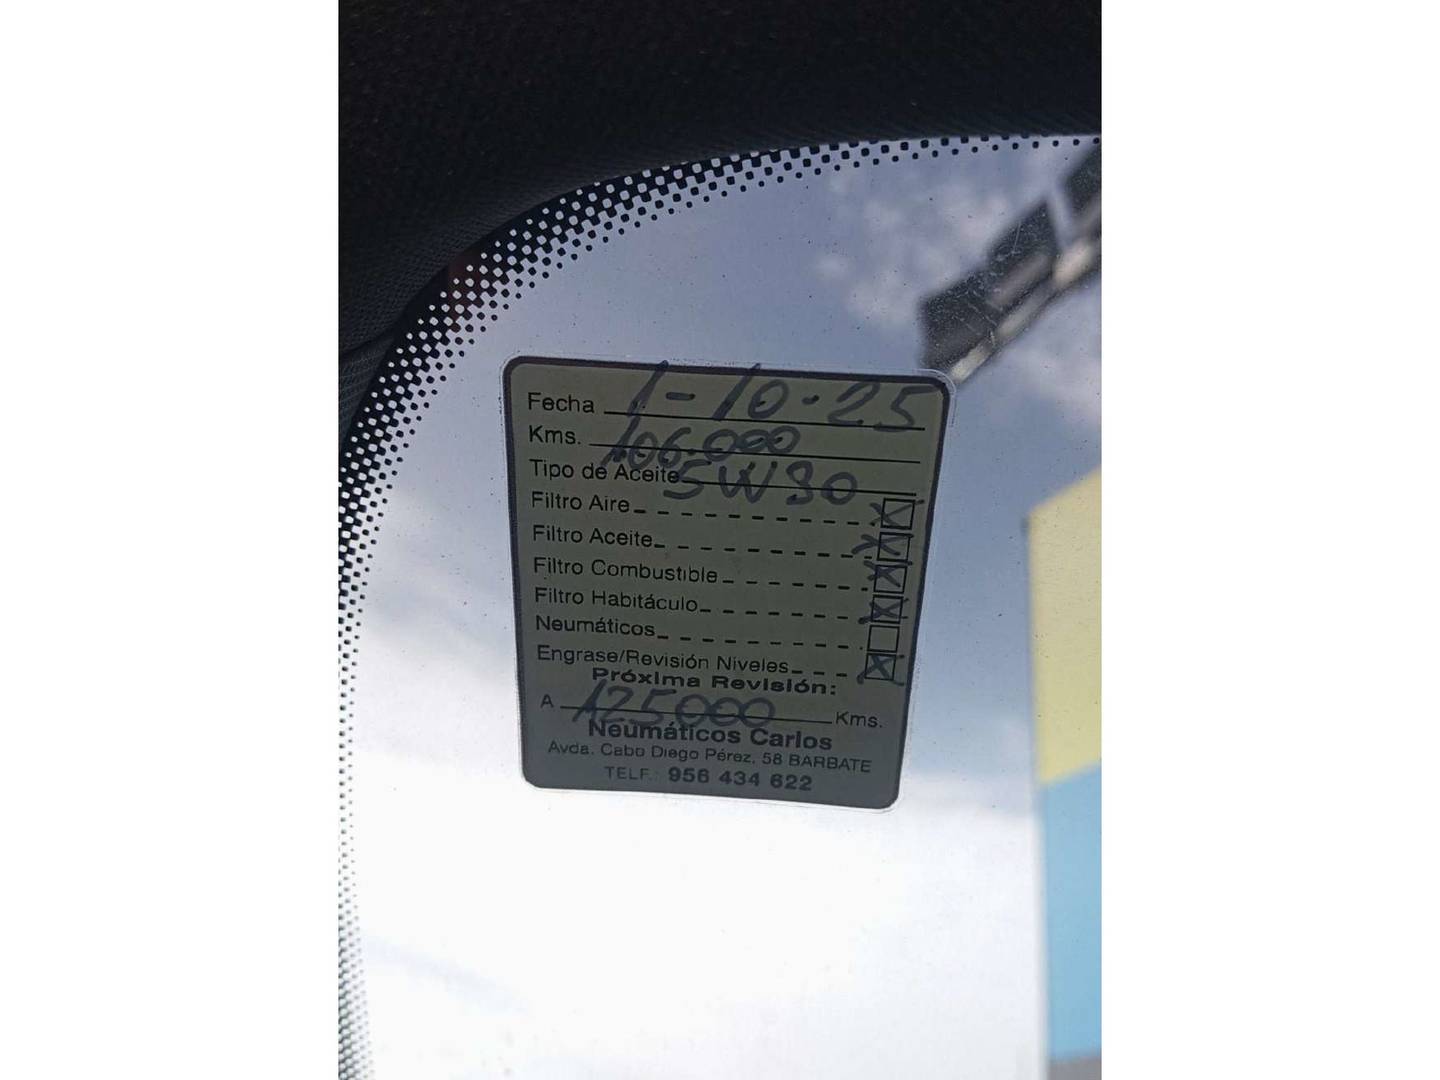 Fecha 1-10-25
Kms. 106.000
Tipo de Aceite 5W30
Filtro Aire X
Filtro Aceite X
Filtro Combustible X
Filtro Habitáculo X
Neumáticos
Engrase/Revisión Niveles X
Próxima Revisión:
A 125000 Kms.
Neumáticos Carlos
Avda. Cabo Diego Pérez, 58 BARBATE
TELF.: 956 434 622